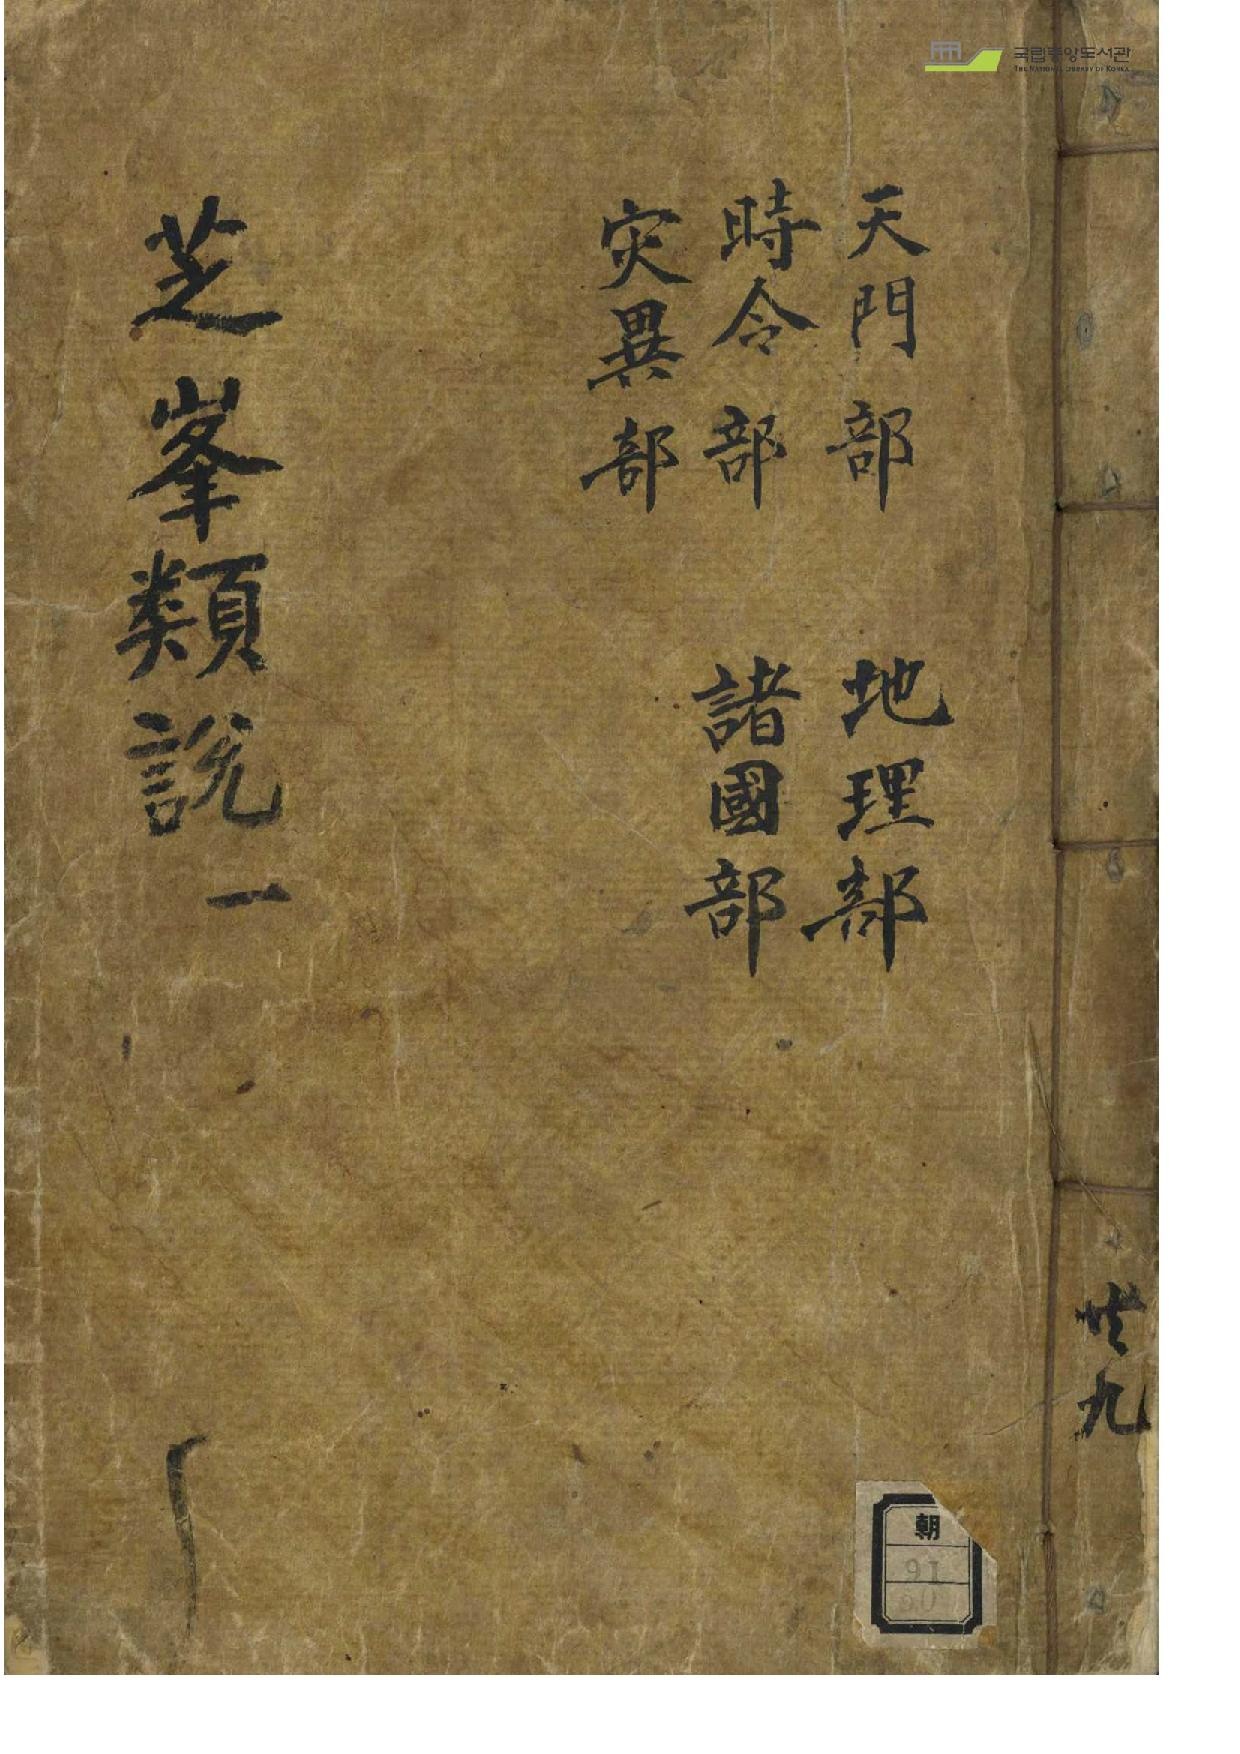 국립중앙도서관
THE NATIONAL LIBRARY OF KOREA
天門部
地理部
時令部
諸國部
灾異部
芝峯類說 一
共九
朝
91